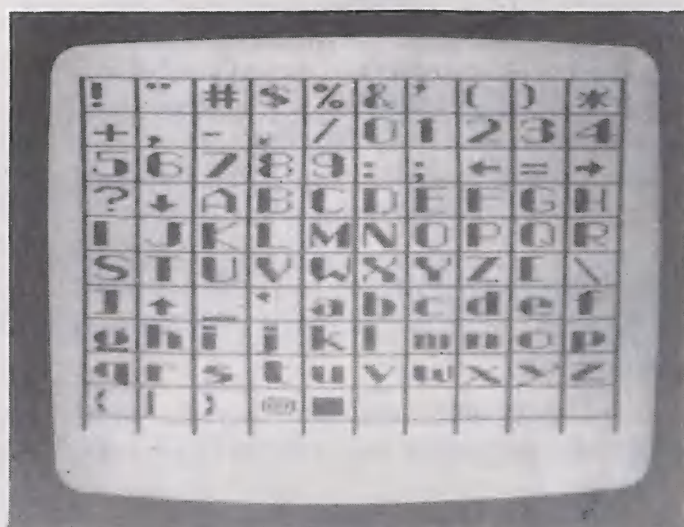 ! " # $ % & ' ( ) *
+ , - . / 0 1 2 3 4
5 6 7 8 9 : ; ← = →
? ↓ A B C D E F G H
I J K L M N O P Q R
S T U V W X Y Z [ \
] ↑ _ ' a b c d e f
g h i j k l m n o p
q r s t u v w x y z
{ | } ■